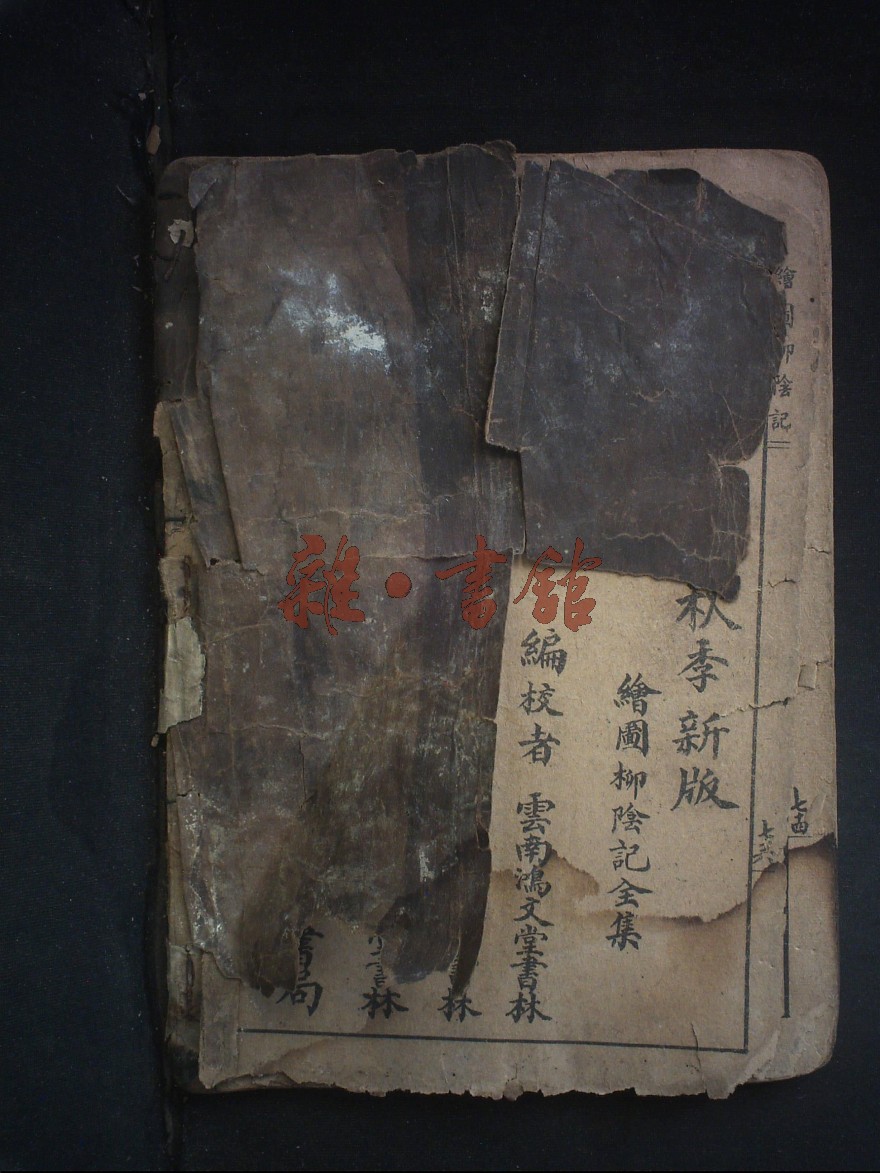 繪圖柳陰記
秋季新版
繪圖柳陰記全集
編校者 雲南鴻文堂書林
書林
堂書林
書局
雜·書館